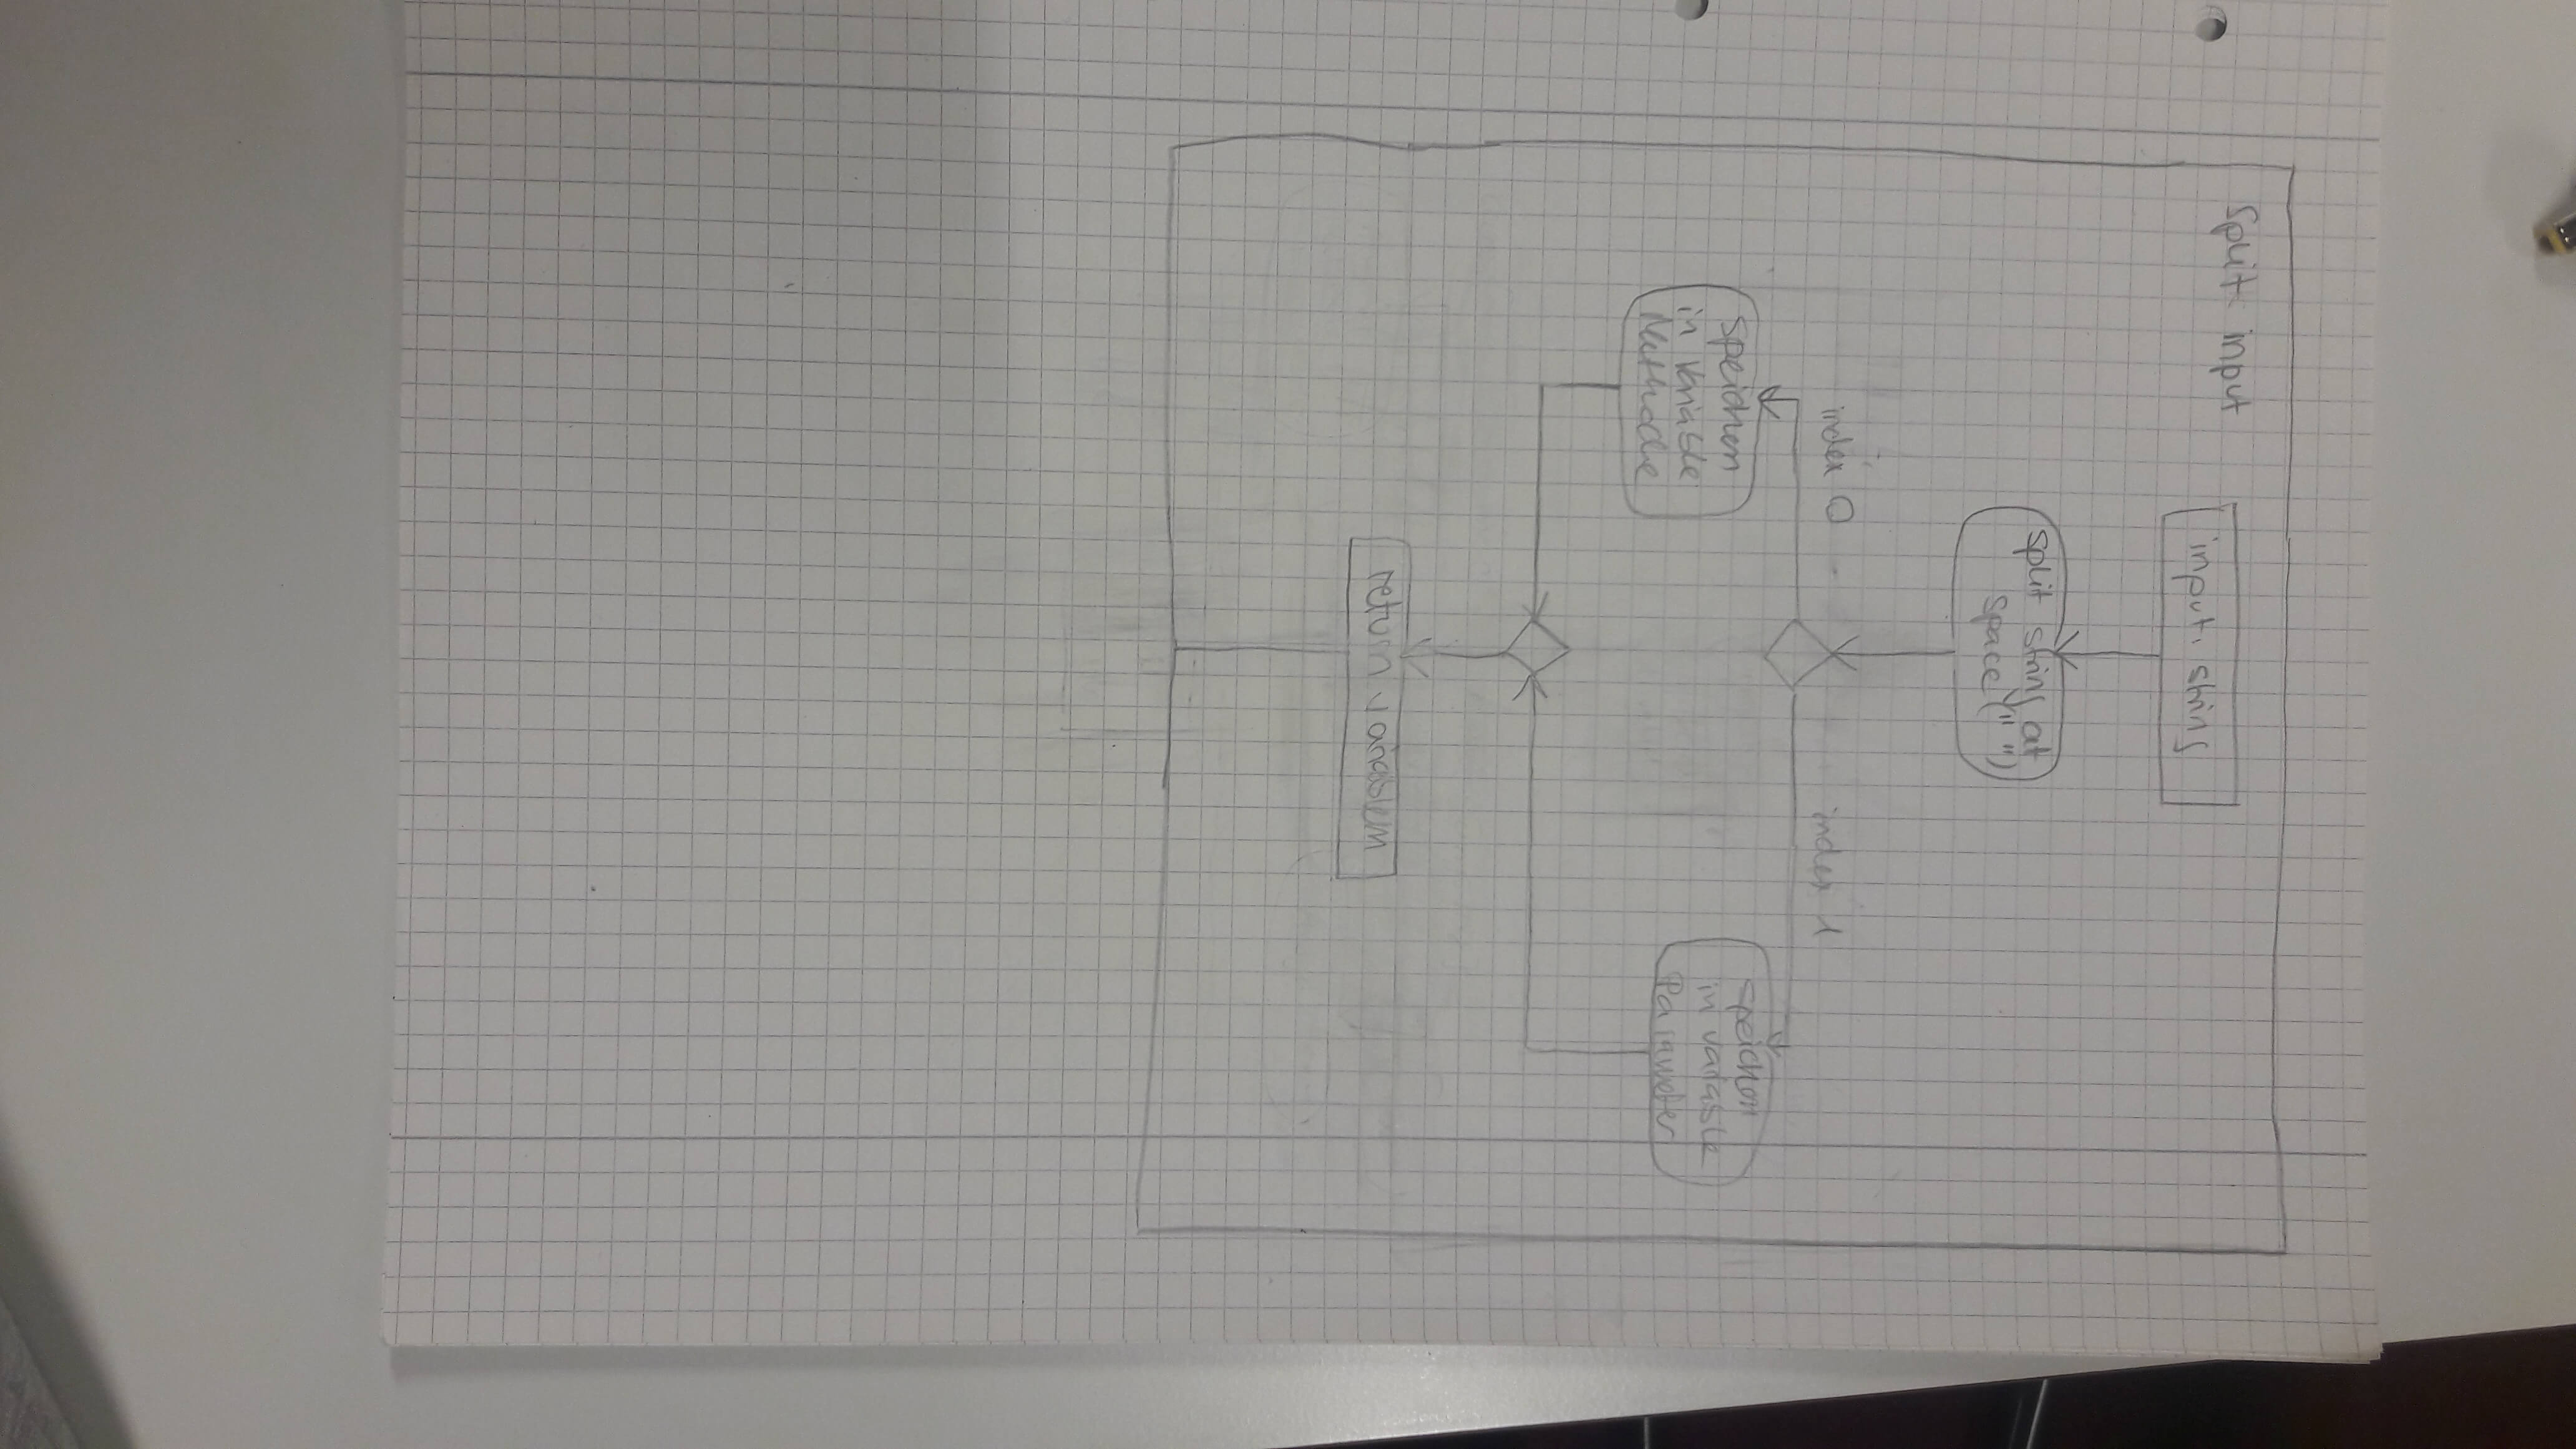 Split input
input. string
Split string at
Space(" ")
index 0
index 1
Speichern
in Variable
Methode
Speichern
in variable
Parameter
return variablen